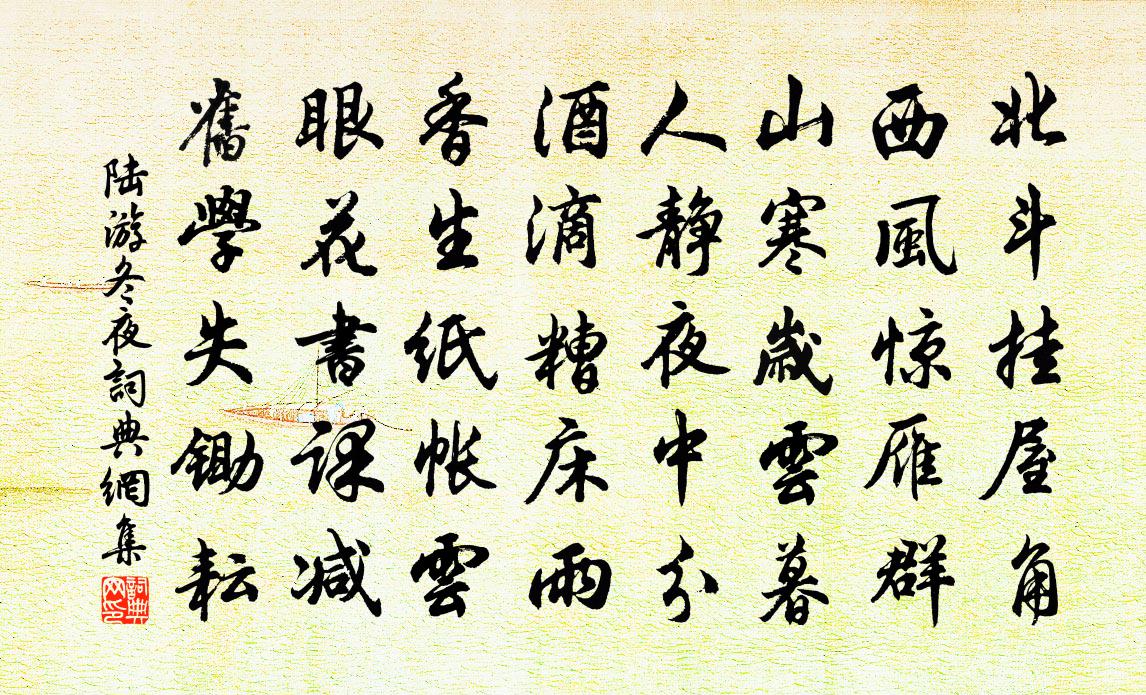 北斗挂屋角
西風惊雁群
山寒歲雲暮
人静夜中分
酒滴糟床雨
香生纸帐雲
眼花書课减
舊學失鋤耘
陆游冬夜詞典網集
詞典網印